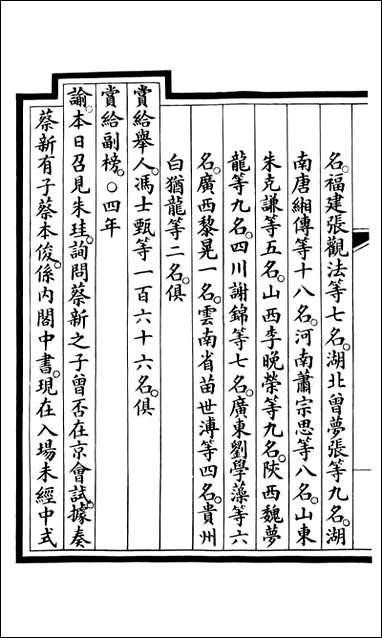 名。福建張觀法等七名。湖北曾夢張等九名。湖
南唐緗傳等十八名。河南蕭宗思等八名。山東
朱克謙等五名。山西李晚榮等九名。陝西魏夢
龍等九名。四川謝錦等七名。廣東劉學藻等六
名。廣西黎晃一名。雲南省苗世溥等四名。貴州
白猶龍等二名。俱
賞給舉人。馮士甄等一百六十六名。俱
賞給副榜。○四年
諭。本日召見朱珪。詢問蔡新之子曾否在京會試。據奏
蔡新有子蔡本俊。係內閣中書。現在入場未經中式